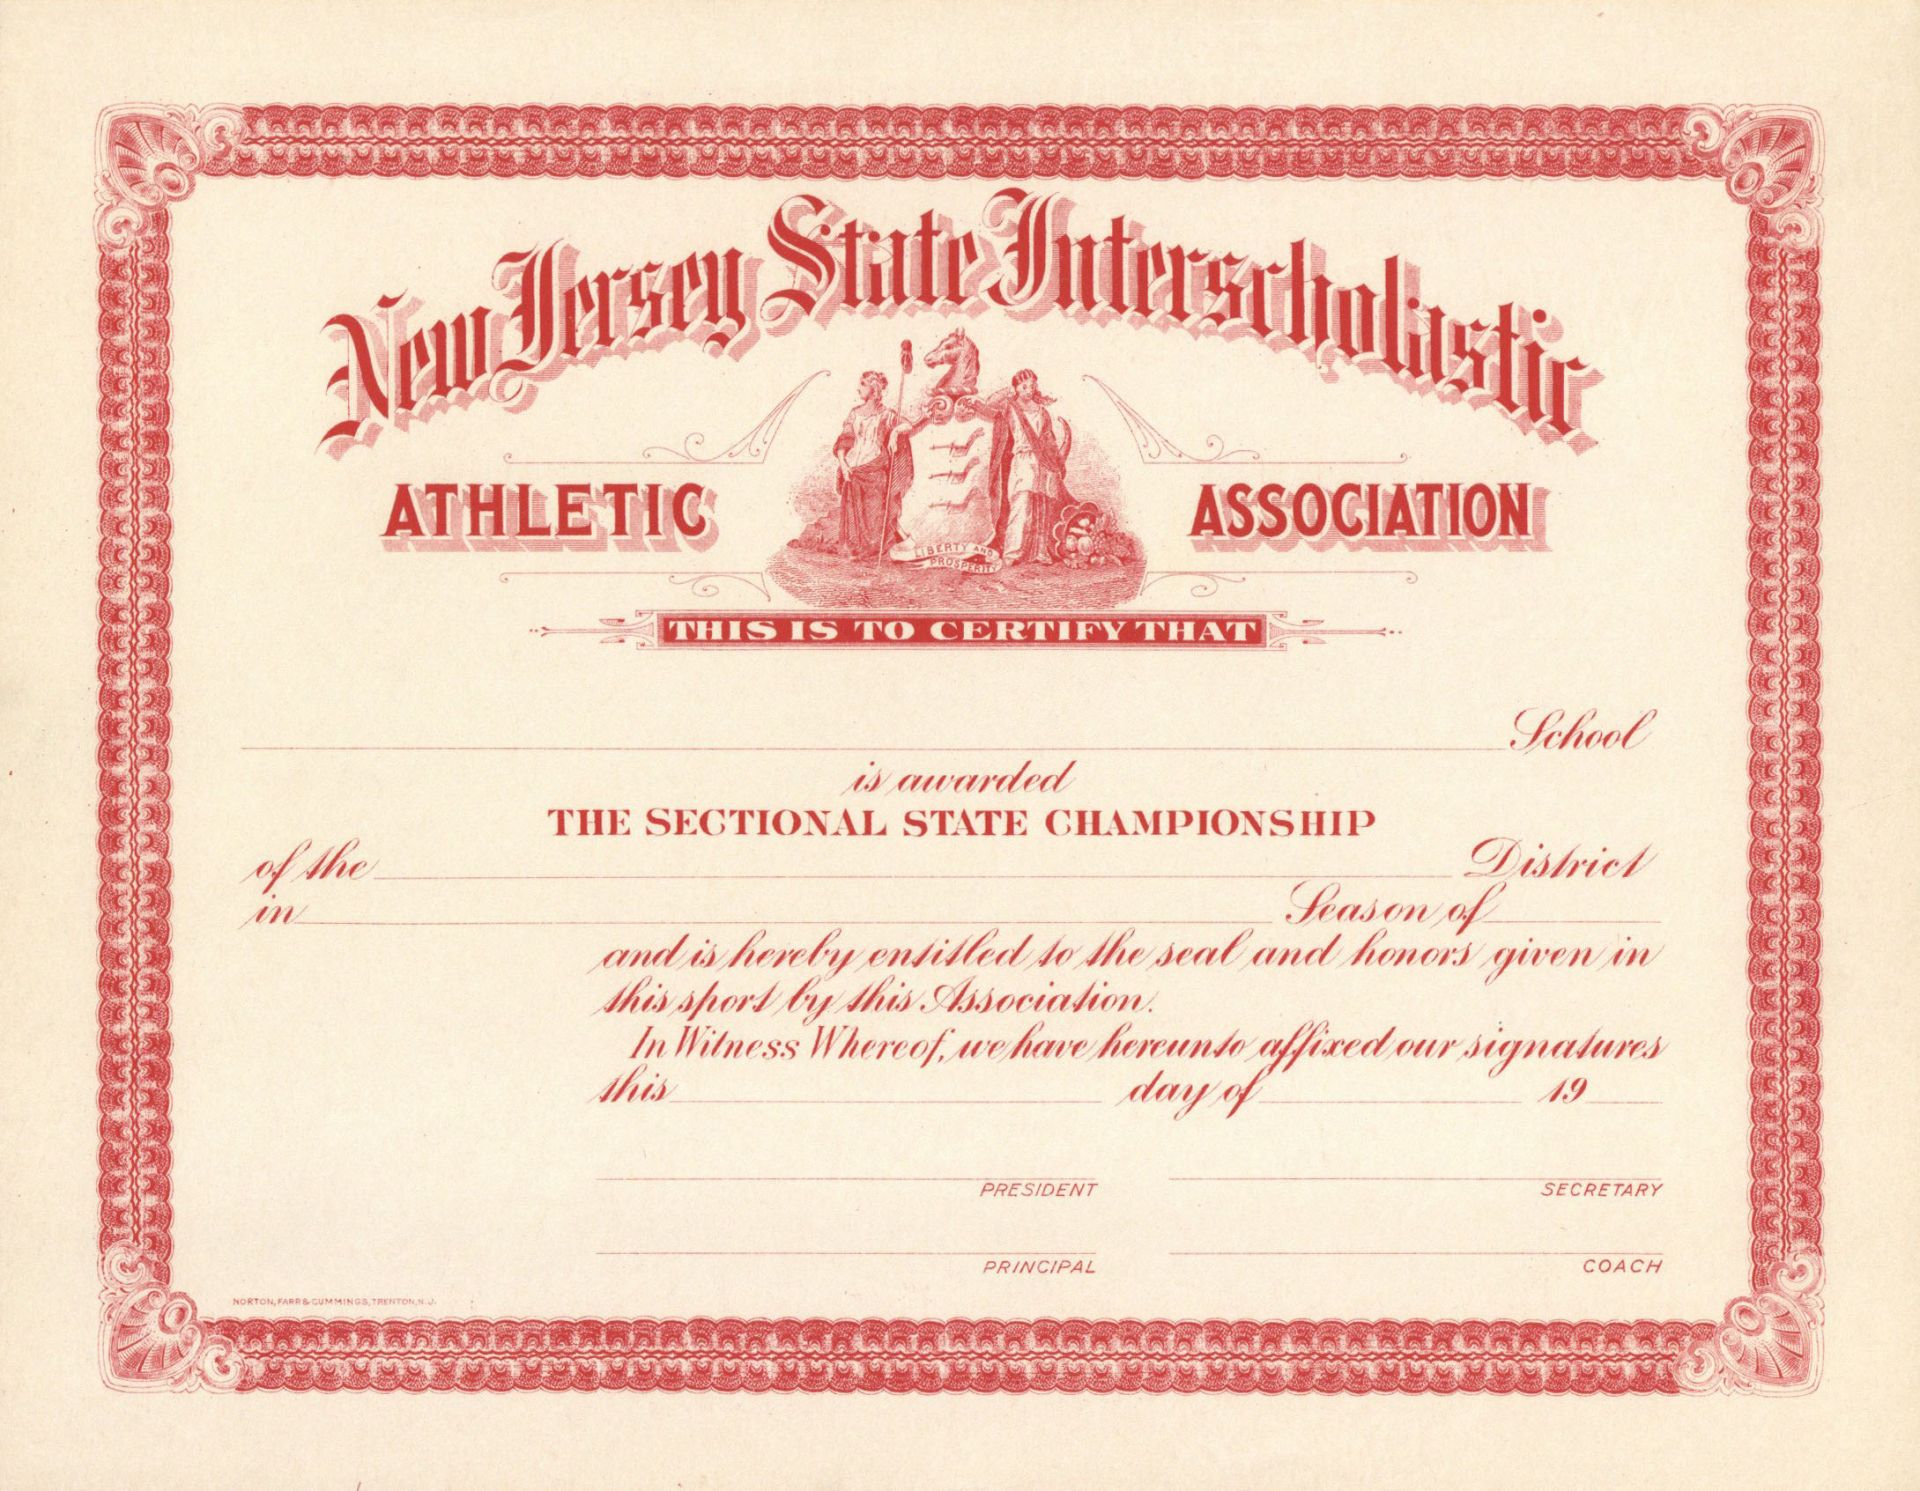 New Jersey State Interscholastic
ATHLETIC ASSOCIATION
LIBERTY AND
PROSPERITY
THIS IS TO CERTIFY THAT
School
is awarded
THE SECTIONAL STATE CHAMPIONSHIP
of the District
in Season of
and is hereby entitled to the seal and honors given in
this sport by this Association.
In Witness Whereof, we have hereunto affixed our signatures
this day of 19
PRESIDENT SECRETARY
PRINCIPAL COACH
NORTON, FARR & CUMMINGS, TRENTON, N. J.